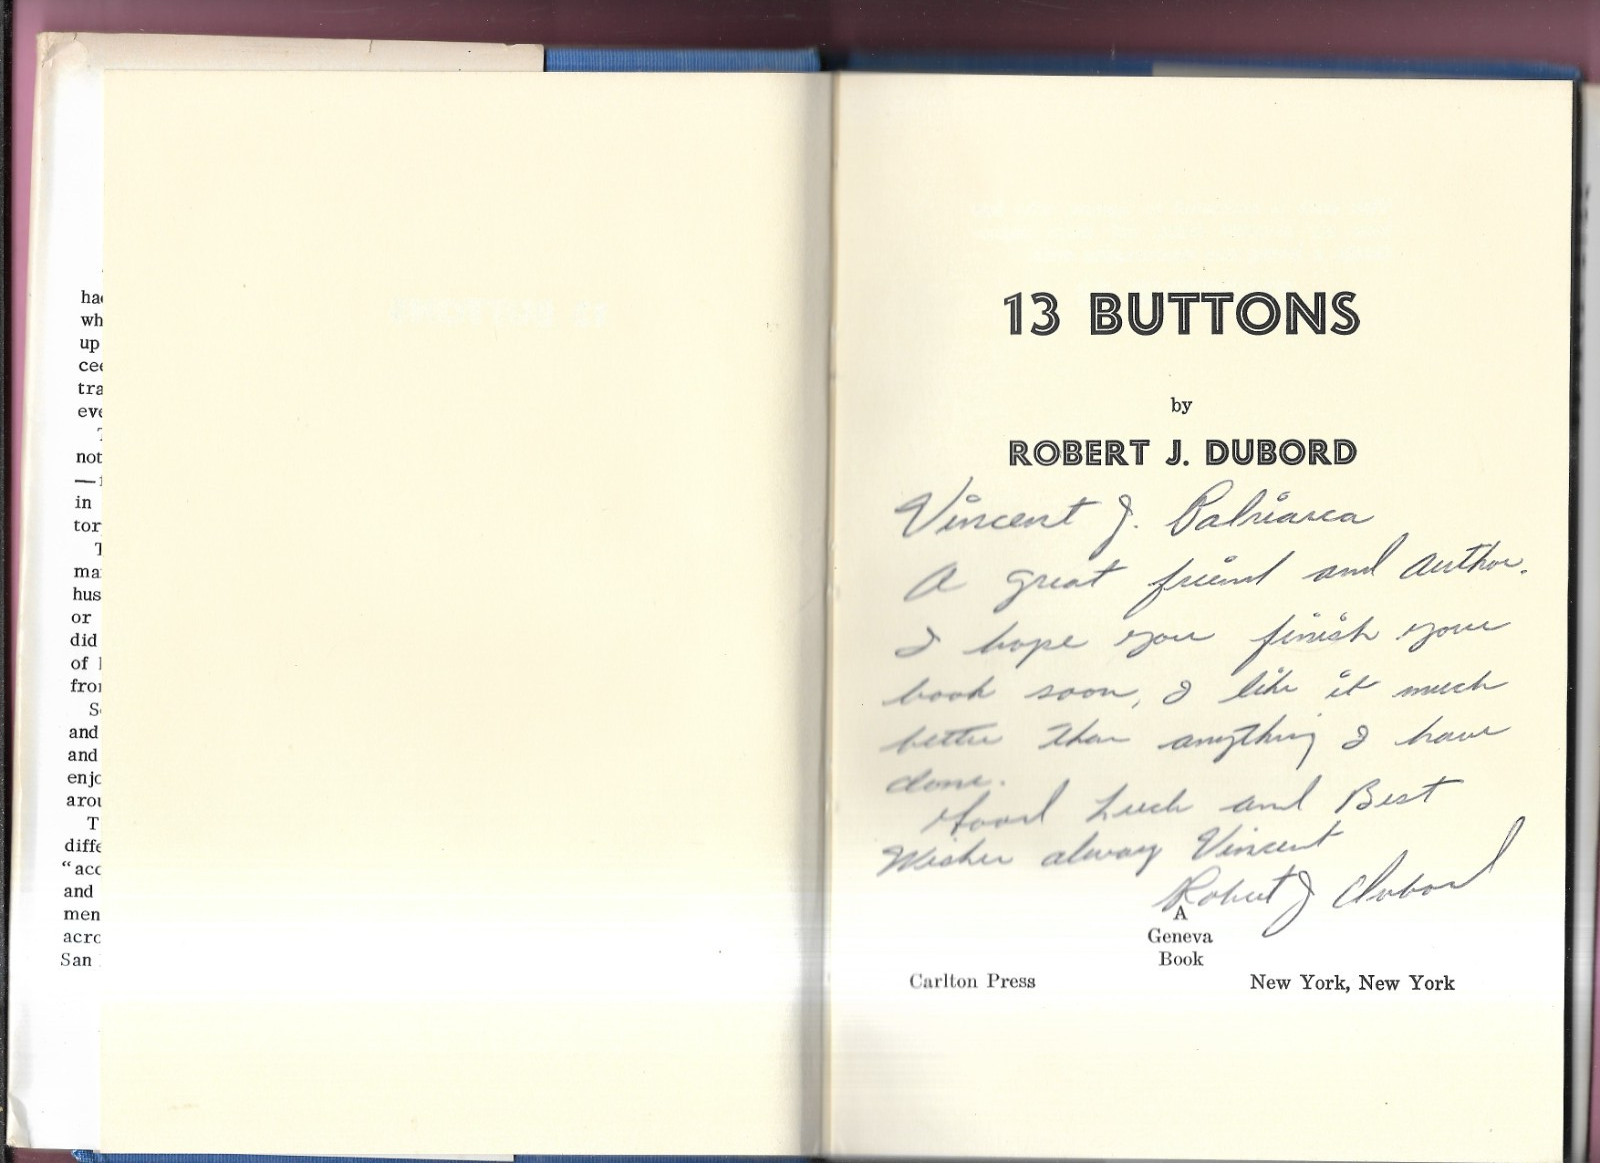 ha
wh
up
cee
tra
eve
T
not
—
in
tor
T
ma
hus
or
did
of
fro
S
and
and
enjo
arou
T
diffe
“acc
and
men
acro
San
13 BUTTONS
by
ROBERT J. DUBORD
Vincent J. Patriarca
A great friend and author.
I hope you finish your
book soon, I like it much
better than anything I have
done.
Good Luck and Best
Wishes always Vincent
Robert J Dubord
A
Geneva
Book
Carlton Press New York, New York